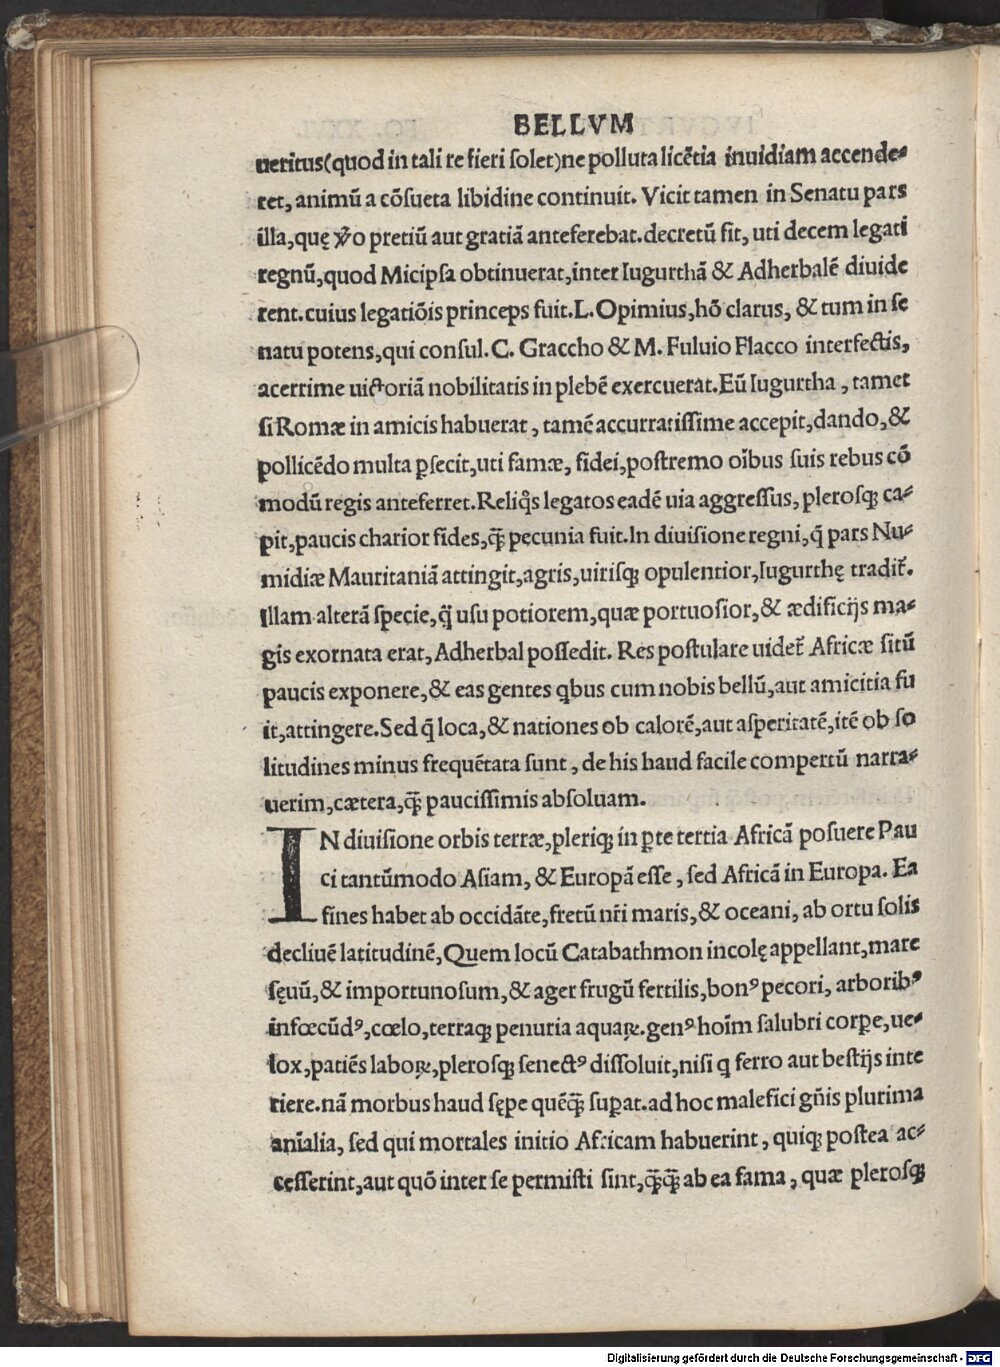 BELLVM
ueritus(quod in tali re fieri ſolet)ne polluta licẽtia inuidiam accende⸗
ret, animũ a cõſueta libidine continuit. Vicit tamen in Senatu pars
illa,quę ꝟo pretiũ aut gratiã anteferebat.decretũ fit, uti decem legati
regnũ,quod Micipſa obtinuerat,inter Iugurthã & Adherbalẽ diuide
rent.cuius legatiõis princeps fuit.L.Opimius,hõ clarus, & tum in ſe
natu potens,qui conſul.C. Graccho & M. Fuluio Flacco interfectis,
acerrime uictoriã nobilitatis in plebẽ exercuerat.Eũ Iugurtha , tamet
ſi Romæ in amicis habuerat , tamẽ accurratiſſime accepit,dando,&
pollicẽdo multa ꝑfecit,uti famæ, fidei,poſtremo oĩbus ſuis rebus cõ
modũ regis anteferret.Reliq̃s legatos eadẽ uia aggreſſus, pleroſq; ca⸗
pit,paucis charior fides,q̃ꝫ pecunia fuit.In diuiſione regni,q̃ pars Nu⸗
midiæ Mauritaniã attingit,agris,uiriſq; opulentior,Iugurthę tradit᷑.
Illam alterã ſpecie,q̃ uſu potiorem,quæ portuoſior,& ædificijs ma⸗
gis exornata erat,Adherbal poſſedit. Res poſtulare uidet᷑ Africæ ſitũ
paucis exponere,& eas gentes qbus cum nobis bellũ,aut amicitia fu
it,attingere.Sed q̃ loca,& nationes ob calorẽ,aut aſperitatẽ,itẽ ob ſo
litudines minus frequẽtata ſunt , de his haud facile compertũ narra⸗
uerim,cætera,q̃ꝫ pauciſſimis abſoluam.
IN diuiſione orbis terræ,pleriq; in ꝑte tertia Africã poſuere Pau
ci tantũmodo Aſiam, & Europã eſſe , ſed Africã in Europa. Ea
fines habet ab occidãte,fretũ nr̃i maris,& oceani, ab ortu ſolis
decliuẽ latitudinẽ,Quem locũ Catabathmon incolę appellant,mare
ſęuũ,& importunoſum,& ager frugũ fertilis,bonꝰ pecori, arboribꝰ
infœcũdꝰ,cœlo,terraq; penuria aquaꝝ.genꝰ hoĩm ſalubri corꝑe,ue⸗
lox,patiẽs laboꝝ,pleroſq; ſenectꝰ diſſoluit,niſi q ferro aut beſtijs inte
riere.nã morbus haud ſępe quẽq̃ꝫ ſuꝑat.ad hoc malefici gñis plurima
anĩalia, ſed qui mortales initio Africam habuerint , quiq; poſtea ac⸗
ceſſerint,aut quõ inter ſe permiſti ſint,q̃ꝫq̃ꝫ ab ea fama , quæ pleroſq;
Digitalisierung gefördert durch die Deutsche Forschungsgemeinschaft - DFG